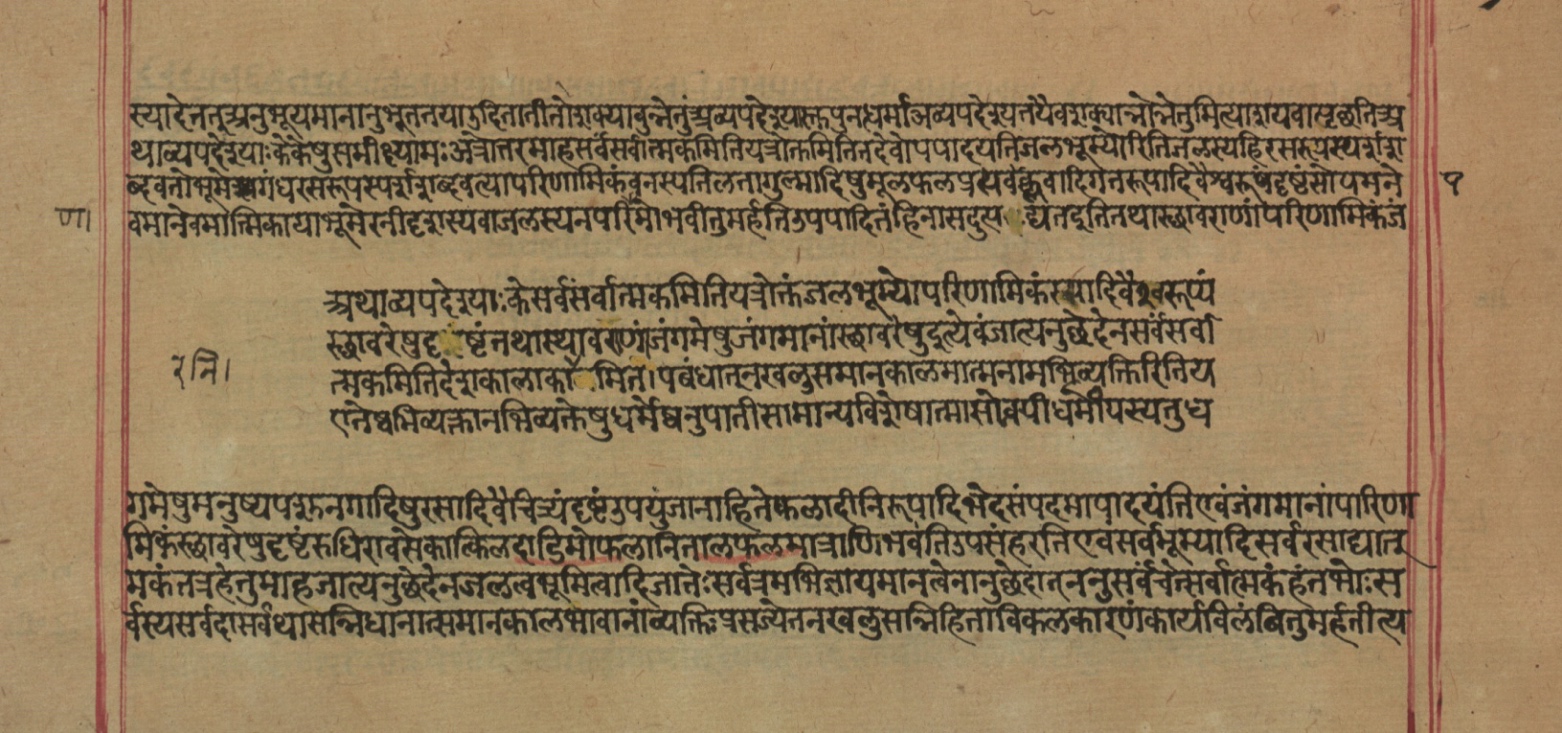 स्यादेनतुअनुभूयमानानुभूततयाउदितातीतोशक्यावुन्नेतुंअव्यपदेश्यास्तपुनधर्माअव्यपदेश्यतयैवशक्यान्नोन्नेतुमित्याशयवान्पृछतिअ
थाव्यपदेश्याःकेकेषुसमीक्ष्यामःअत्रोत्तरमाहसर्वंसर्वात्मकमितियत्रोक्तमितितदेवोपपादयतिजलभूम्योरितिजलस्यहिरसरूपस्पर्शश
ब्दवतोभूमेश्चगंधरसरूपस्पर्शशब्दवत्यापरिणामिकंवनस्पतिलतागुल्मादिषुमूलफलप्रसवपल्लवादिगतरसादिवैश्वरूप्यंदृष्टंसोयमने
वमानेवमात्मिकायाभूमेरनीदृशस्यवाजलस्यनपरिमोभवीतुमर्हतिउपपादितंहिनासदुत्प द्यतइतितथास्थावराणांपरिणामिकंजं
णा।
अथाव्यपदेश्याःकेसर्वंसर्वात्मकमितियत्रोक्तंजलभूम्योपरिणामिकंरसादिवैश्वरूप्यं
स्थावरेषुदृ ष्टंतथास्थावराणांजंगमेषुजंगमानांस्थावरेषुइत्येवंजात्यनुछेदेनसर्वंसर्वा
त्मकमितिदेशकालाका मित्तापबंधात्नखलुसमानकालमात्मनामभिव्यक्तिरितिय
रनि।
एतेष्वभिव्यक्तानभिव्यक्तेषुधर्मेष्वनुपातीसामान्यविशेषात्मासोन्वयीधर्मीयस्यतुध
गमेषुमनुष्यपशुनगादिषुरसादिवैचित्र्यंदृष्टंउपयुंजानाहितेफलादीनिरूपादिभेदसंपदमापादयंतिएवंजंगमानांपारिणा
मिकंस्थावरेषुदृष्टंरुधिरावसेकात्किलदाडिमीफलानितालफलमात्राणिभवंतिउपसंहरतिएवसर्वंभूम्यादिसर्वरसाद्यात्
मकंतत्रहेतुमाहजात्यनुछेदेनजलत्वभूमित्वादिजातेःसर्वत्रमभिज्ञायमानत्वेनानुछेदात्ननुसर्वंचेत्सर्वात्मकंहंतभोःस
र्वस्यसर्वदासर्वथासन्निधानात्समानकालभावानांव्यक्तिःप्रसज्येतनखलुसन्निहिताविकलकारणंकार्यंविलंबितुमर्हतीत्य